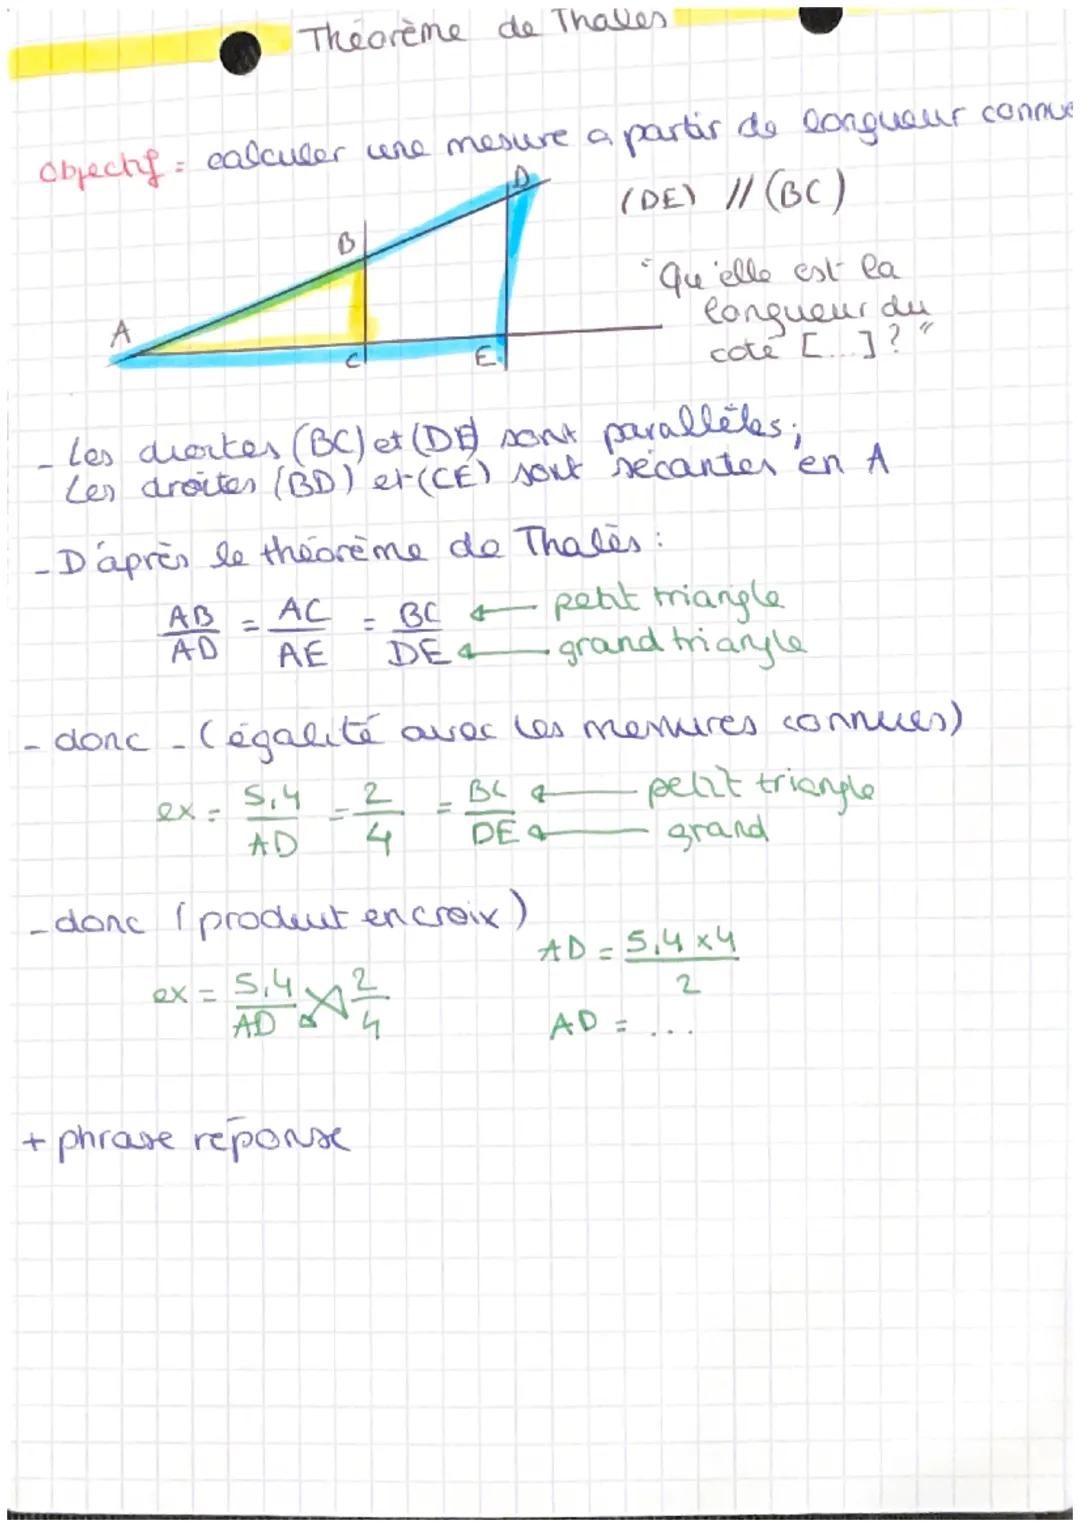 Théorème de Thales
Objectif = calculer une mesure a partir de longueur connue
(DE) // (BC)
D
B
A
C
E
"Qu'elle est la
longueur du
coté [...]?"
- Les droites (BC) et (DE) sont parallèles;
Les droites (BD) et (CE) sont sécantes en A
- D'après le théorème de Thalès :
AB/AD = AC/AE = BC/DE ← petit triangle
← grand triangle
- donc - (égalité avec les mesures connues)
ex = 5,4/AD = 2/4 = BC/DE ← petit triangle
← grand
- donc (produit en croix)
ex = 5,4/AD 2/4
AD = 5,4 x 4/2
AD = ...
+ phrase réponse